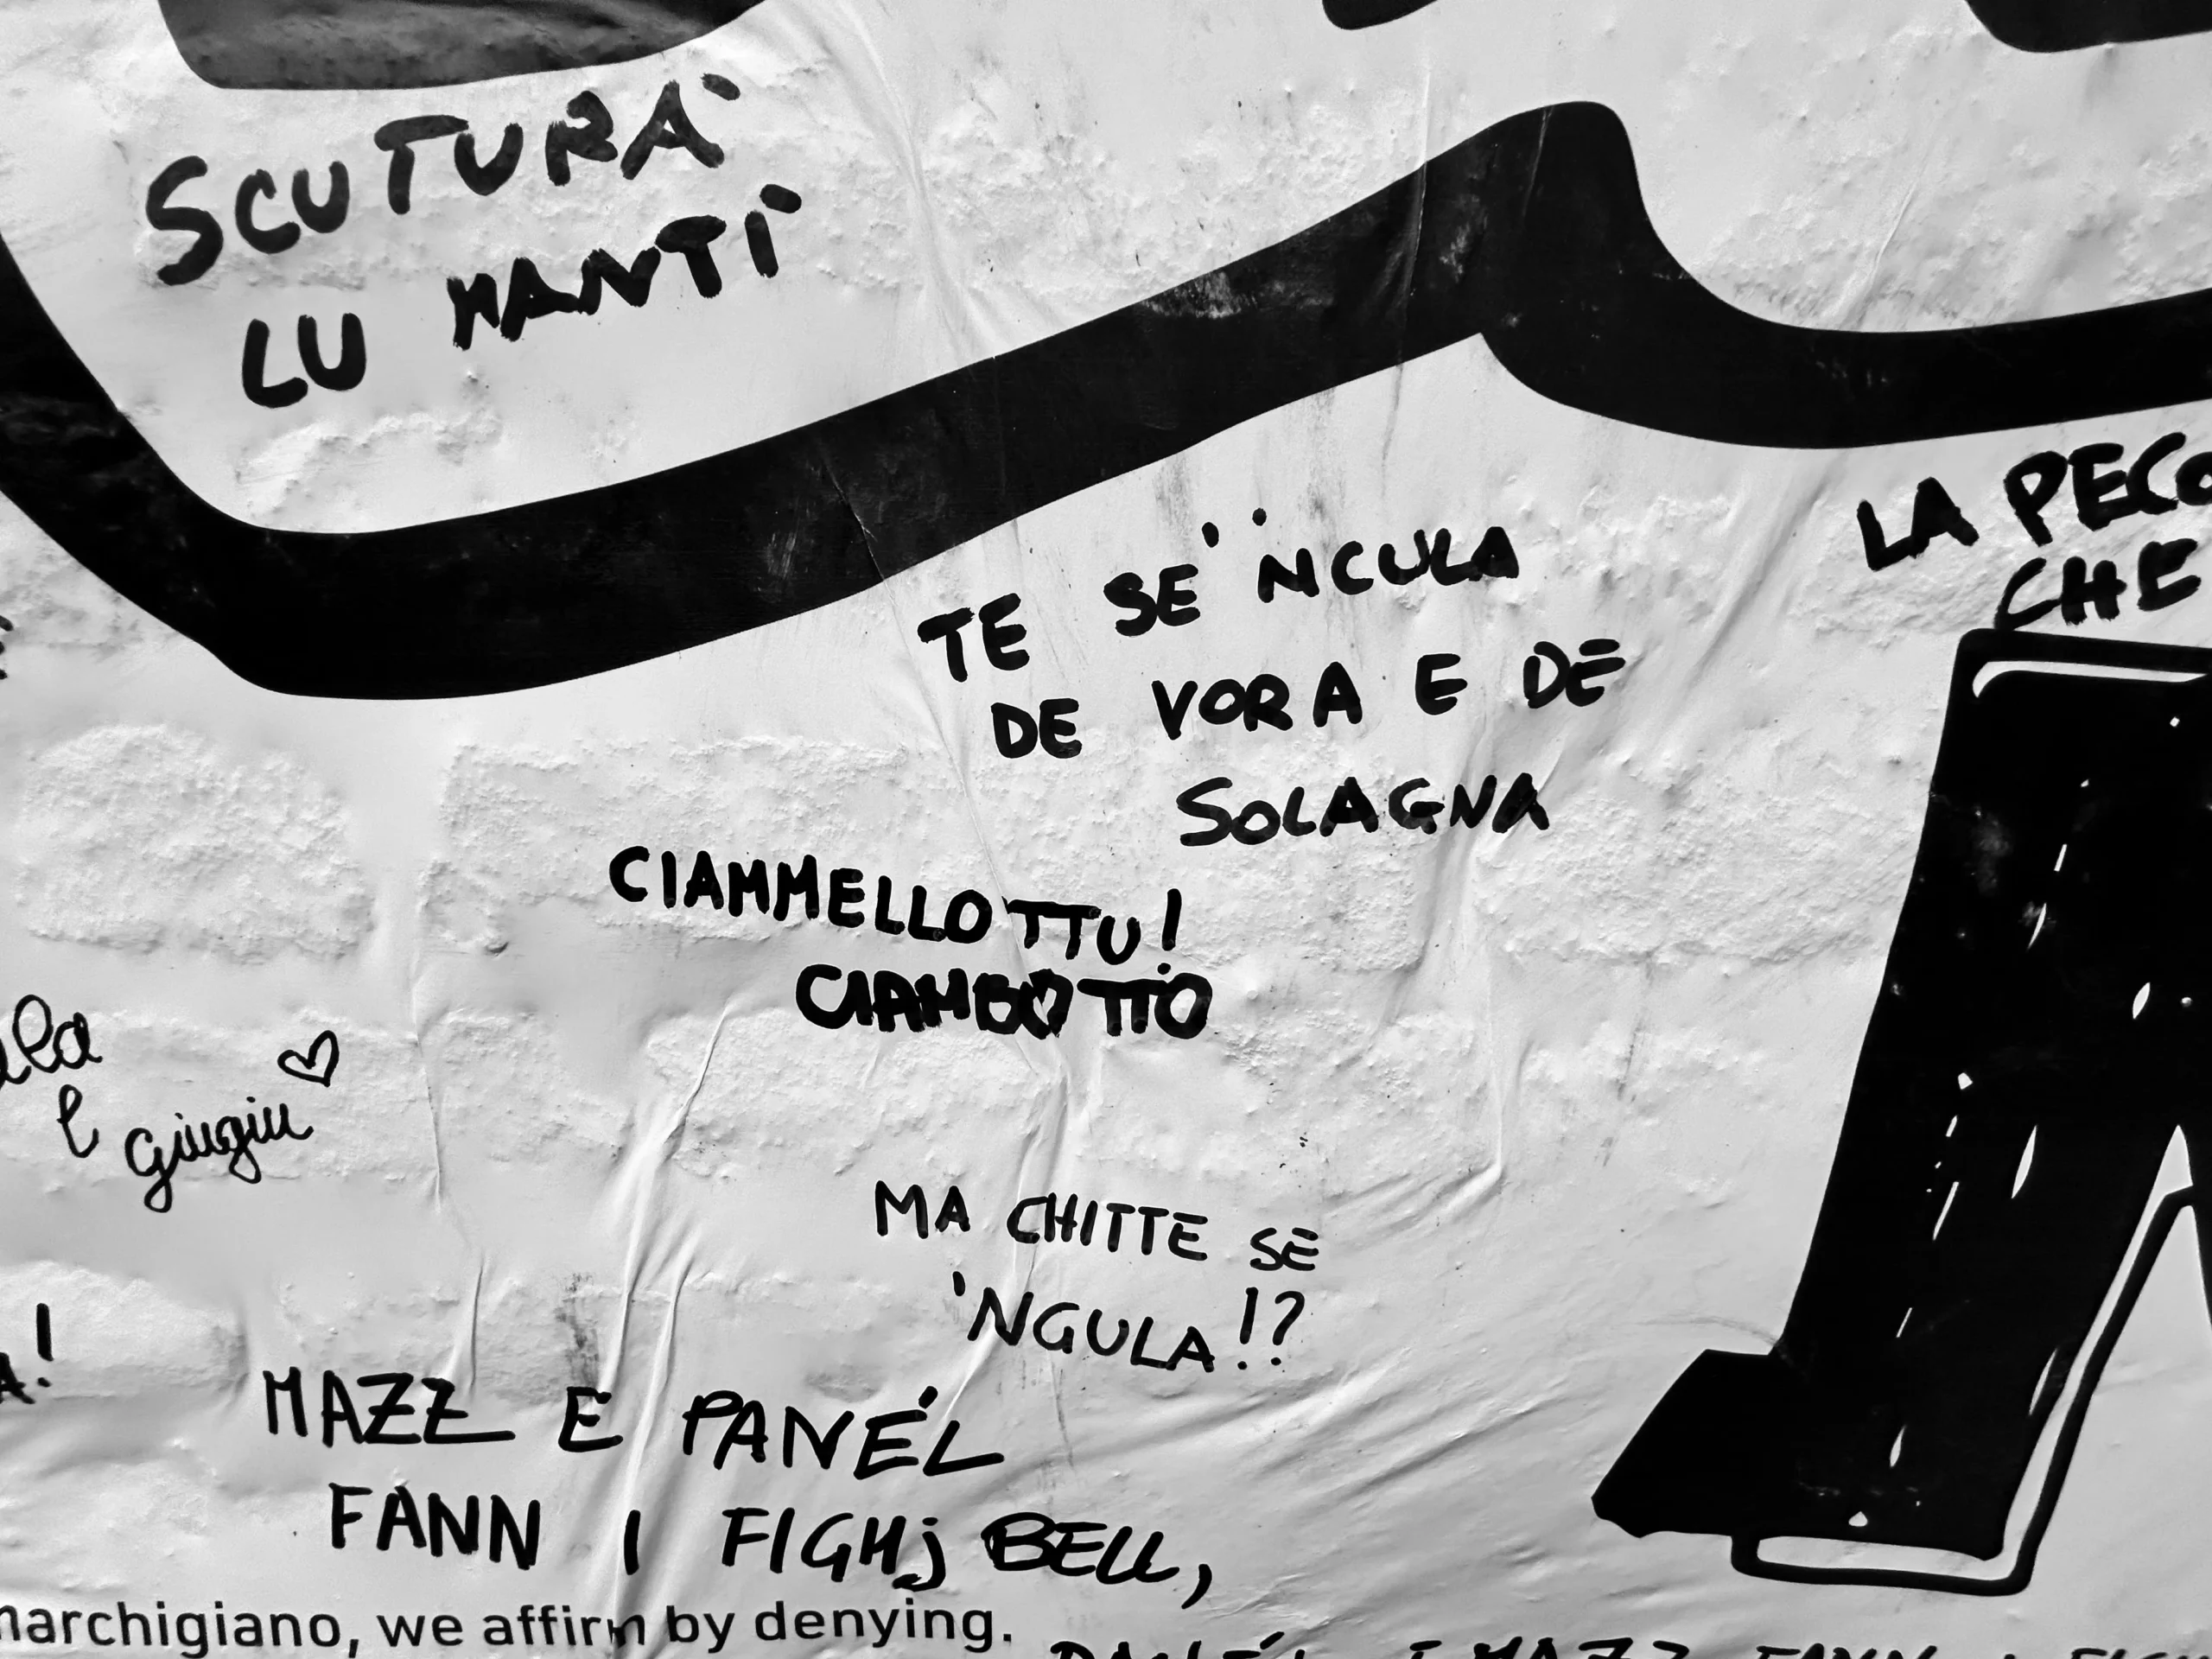 SCUTURA'
LU MANTI'
LA PECO
CHE
TE SE' 'NCULA
DE VORA E DE
SOLAGNA
CIAMMELLOTTU!
CIAMBOTTO
ala
e giugiu
MA CHITTE SE
'NGULA!?
A!
MAZZ E PANÉL
FANN I FIGHj BELL,
marchigiano, we affirm by denying.